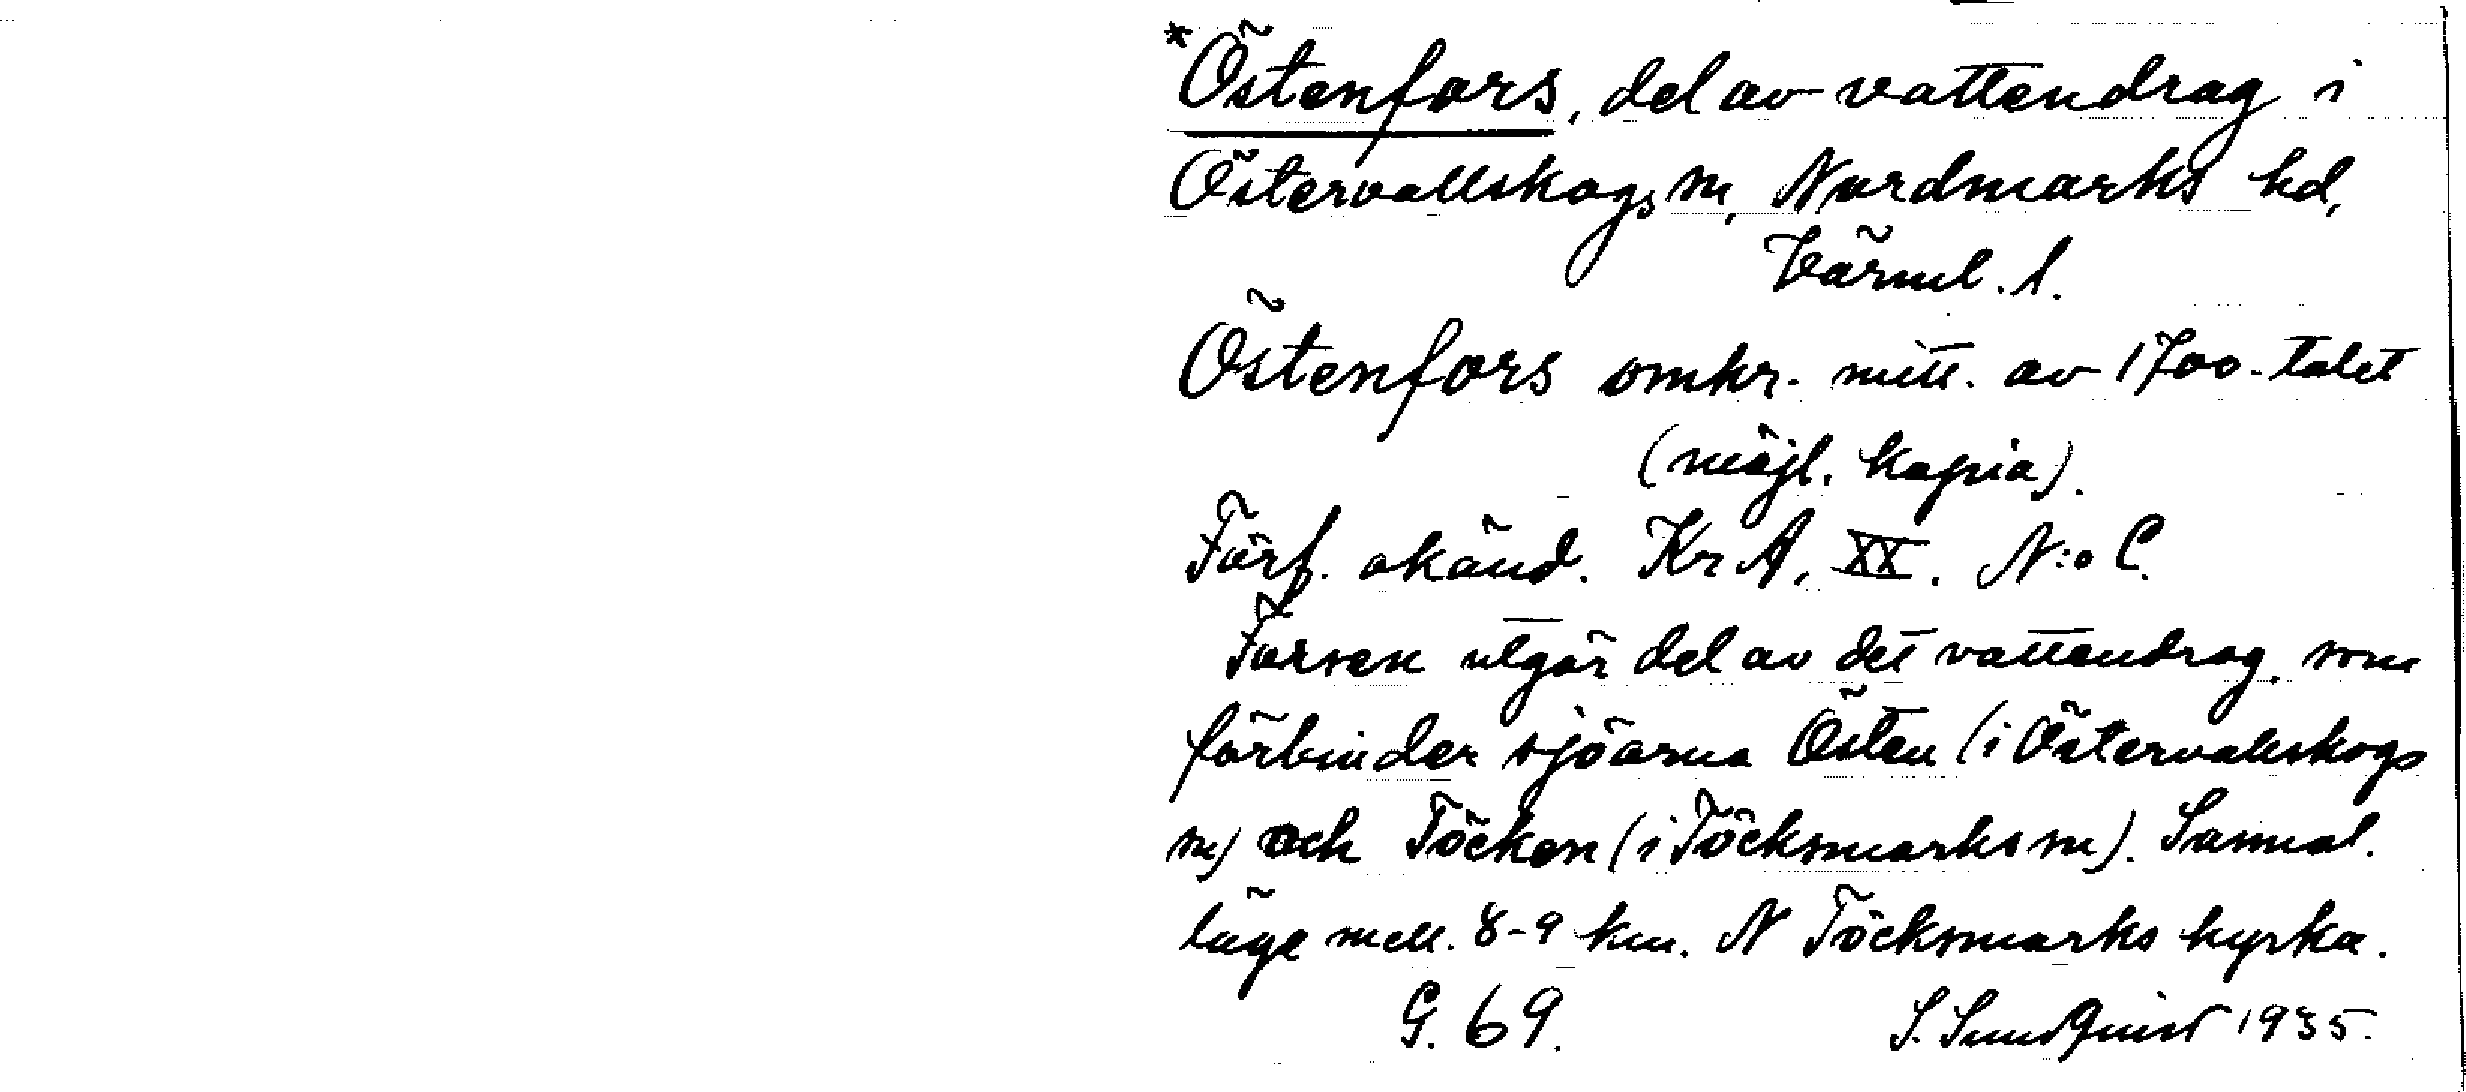 *Östenfors, del av vattendrag i
Östervallskogs sn, Nordmarks hd,
Värml. l.
Östenfors omkr. mitt. av 1700-talet
(möjl. kopia).
Förf. okänd. KrA, XX. N:o C.
Forsen utgör del av det vattendrag, som
förbinder sjöarna Östen (i Östervallskogs
sn) och Töcken (i Töcksmarks sn). Sannol.
läge mell. 8-9 km. N Töcksmarks kyrka.
G. 69. S. Sundquist 1935.